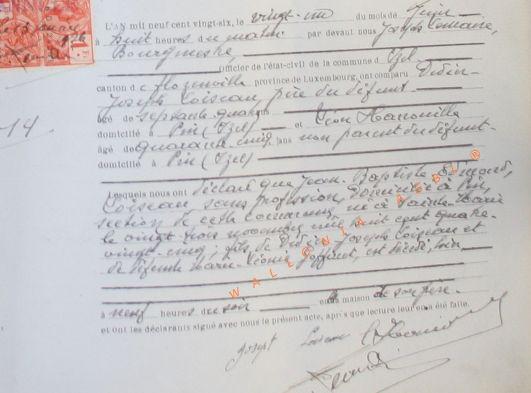 L'AN mil neuf cent vingt-six, le vingt-un du mois de Juin
à huit heures du matin par devant nous Joseph
Bourgmestre,
Officier de l'état-civil de la commune d'Izel
canton de Florenville province de Luxembourg, ont comparu Didier
Joseph Loiseau, père du défunt
âgé de septante quatre et Léon
domicilié à Pin (Izel)
âgé de quarante-cinq ans non parent du défunt
domicilié à Pin (Izel)
Lesquels nous ont déclaré que Jean-Baptiste Edmond,
Loiseau sans profession, domicilié à Pin,
section de cette commune, né à Sainte-Marie
le vingt trois novembre mil huit cent quatre-
vingt-cinq; fils de Didier Joseph Loiseau et
de défunte Marie-Léonie est décédé hier
à neuf heures du soir en la maison de son père.
et ont les déclarants signé avec nous le présent acte, après que lecture leur en a été faite.
Joseph Loiseau
14
WALLONIA ASBL